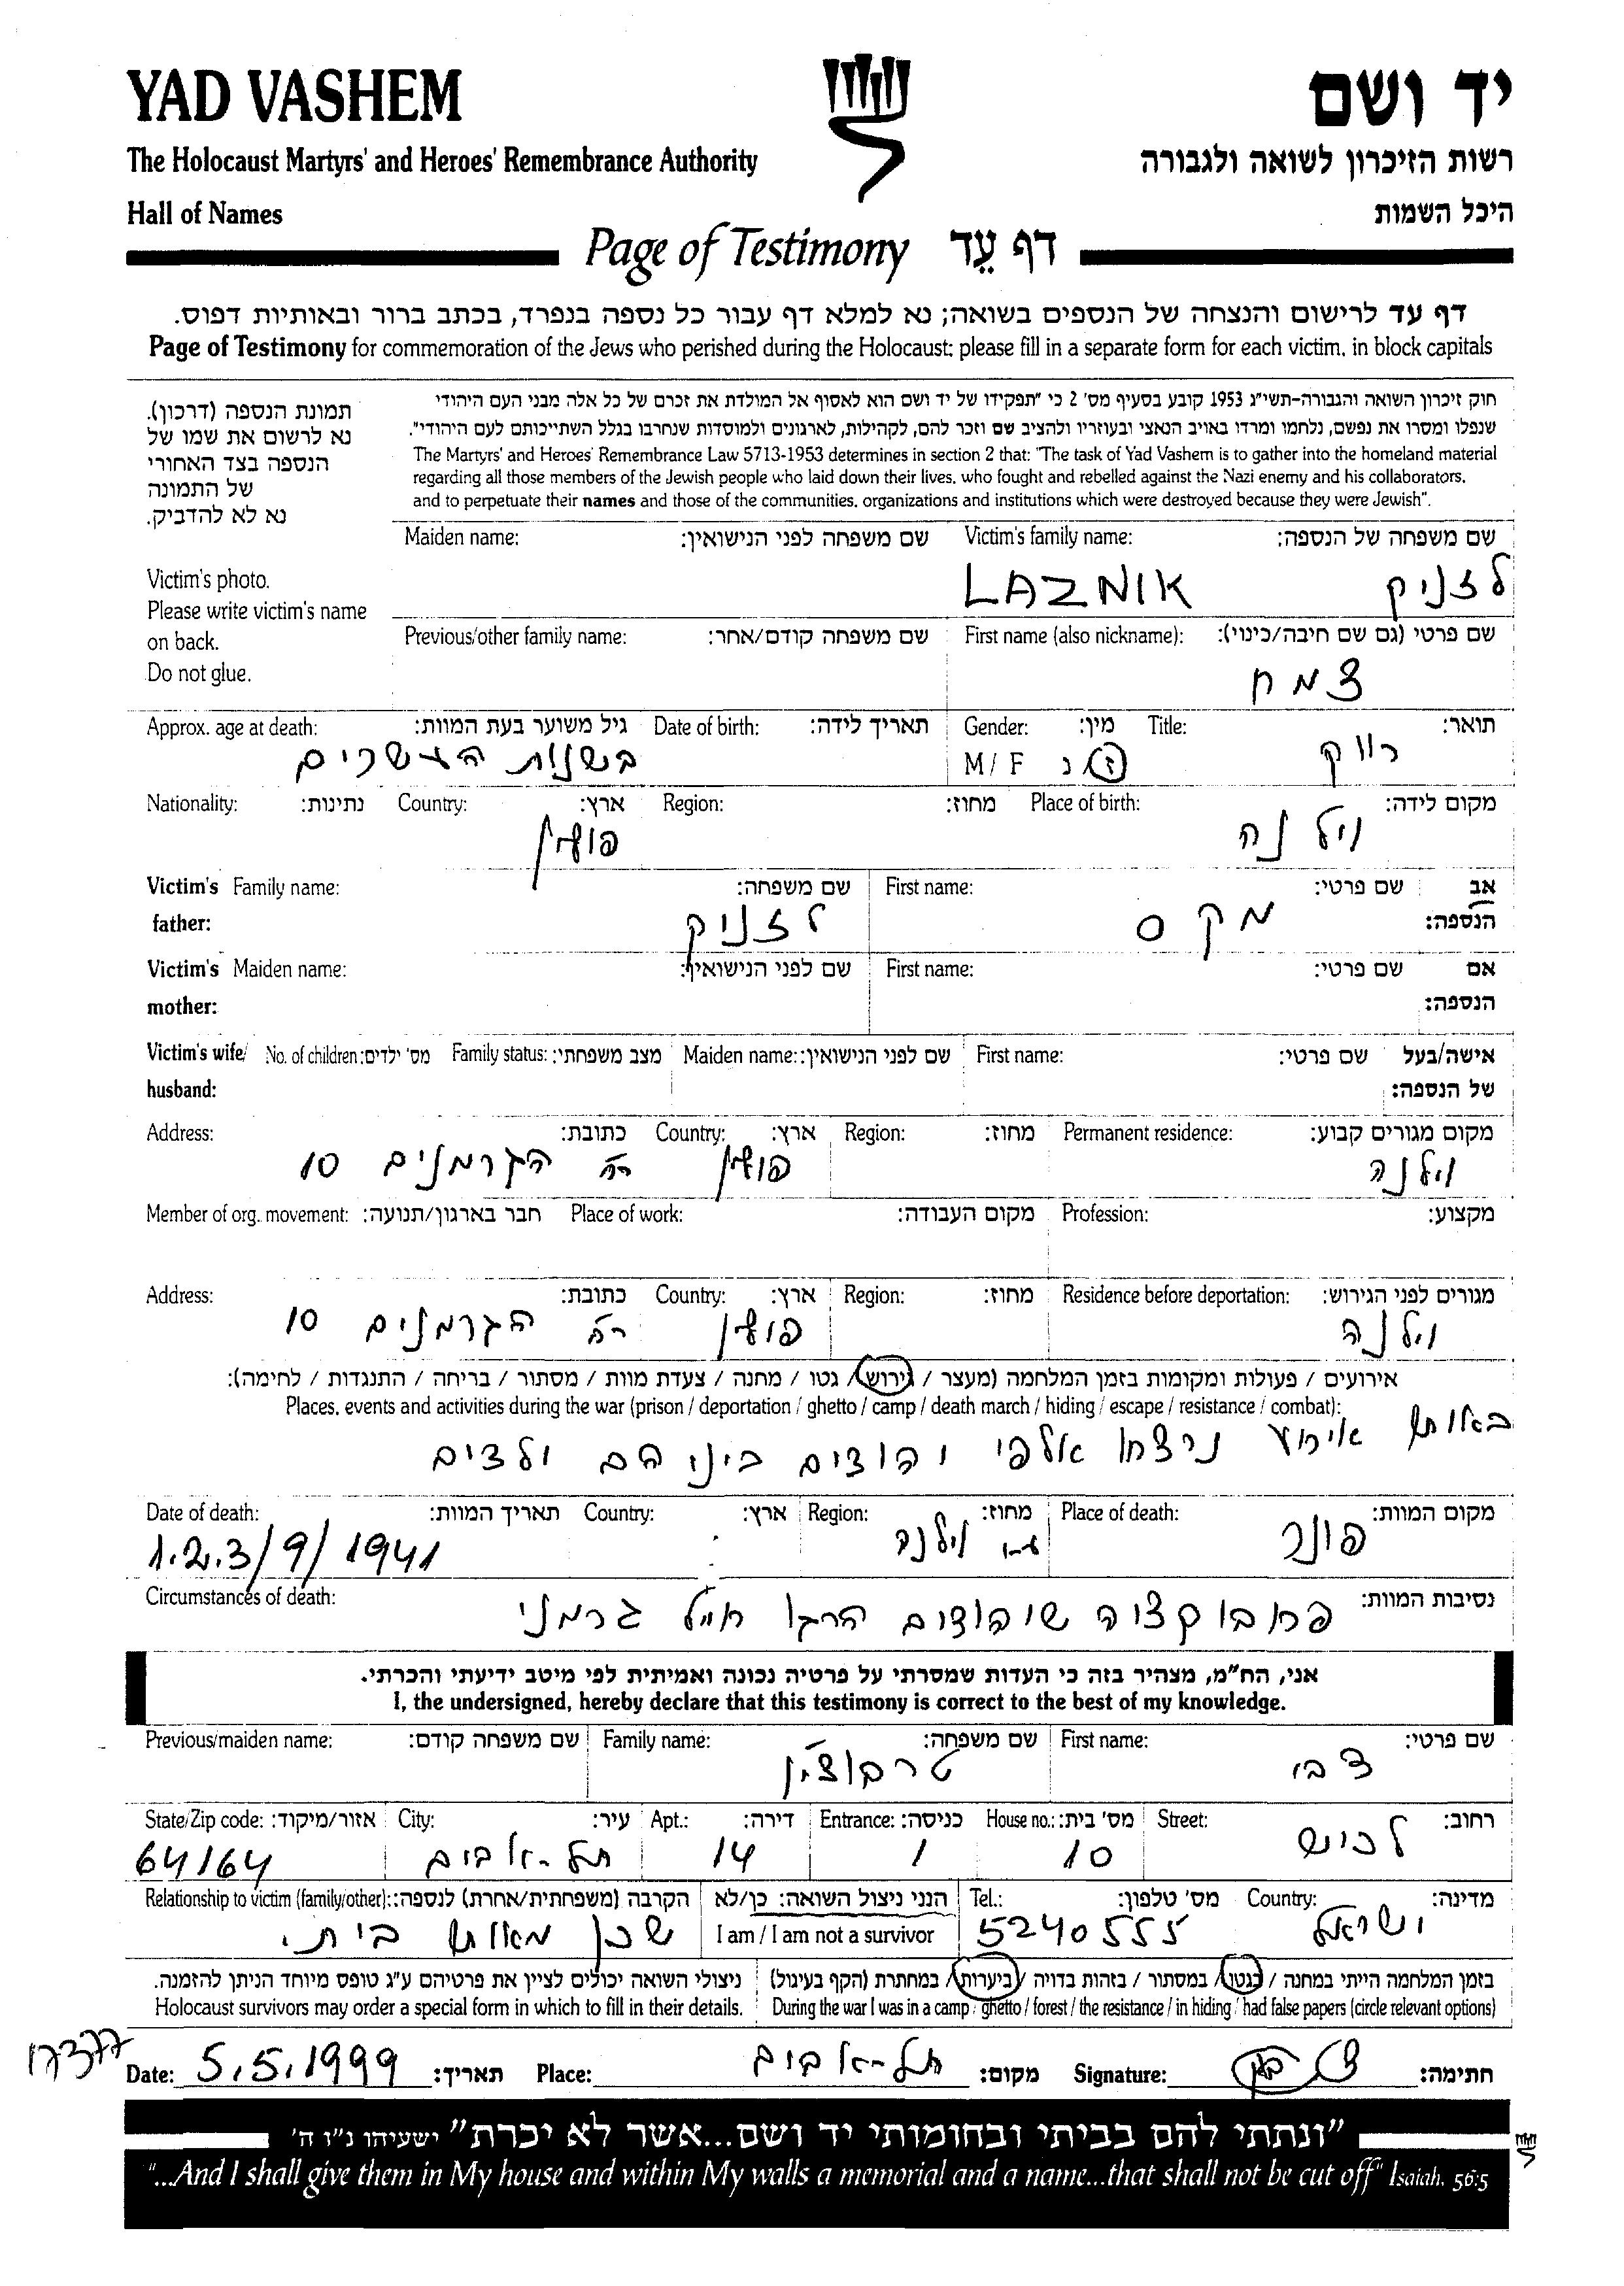 YAD VASHEM
יד ושם
The Holocaust Martyrs' and Heroes' Remembrance Authority
רשות הזיכרון לשואה ולגבורה
Hall of Names
היכל השמות
Page of Testimony דף עֵד
דף עד לרישום והנצחה של הנספים בשואה; נא למלא דף עבור כל נספה בנפרד, בכתב ברור ובאותיות דפוס.
Page of Testimony for commemoration of the Jews who perished during the Holocaust; please fill in a separate form for each victim, in block capitals
תמונת הנספה (דרכון).
נא לרשום את שמו של
הנספה בצד האחורי
של התמונה
נא לא להדביק.
Victim's photo.
Please write victim's name
on back.
Do not glue.
חוק זיכרון השואה והגבורה-תשי"ג 1953 קובע בסעיף מס' 2 כי "תפקידו של יד ושם הוא לאסוף אל המולדת את זכרם של כל אלה מבני העם היהודי
שנפלו ומסרו את נפשם, נלחמו ומרדו באויב הנאצי ובעוזריו ולהציב שם וזכר להם, לקהילות, לארגונים ולמוסדות שנחרבו בגלל השתייכותם לעם היהודי".
The Martyrs' and Heroes' Remembrance Law 5713-1953 determines in section 2 that: "The task of Yad Vashem is to gather into the homeland material
regarding all those members of the Jewish people who laid down their lives, who fought and rebelled against the Nazi enemy and his collaborators,
and to perpetuate their names and those of the communities, organizations and institutions which were destroyed because they were Jewish".
Maiden name: שם משפחה לפני הנישואין: Victim's family name: שם משפחה של הנספה:
LAZNIK לזניק
Previous/other family name: שם משפחה קודם/אחר: First name (also nickname): שם פרטי (גם שם חיבה/כינוי):
צמח
Approx. age at death: גיל משוער בעת המוות: Date of birth: תאריך לידה: Gender: מין: Title: תואר:
בשנות העשרים M/ F ז/נ רווק
Nationality: נתינות: Country: ארץ: Region: מחוז: Place of birth: מקום לידה:
פולין וילנה
Victim's Family name: שם משפחה: First name: שם פרטי: אב
father: לזניק מקס הנספה:
Victim's Maiden name: שם לפני הנישואין: First name: שם פרטי: אם
mother: הנספה:
Victim's wife/ No. of children: מס' ילדים: Family status: מצב משפחתי: Maiden name: שם לפני הנישואין: First name: שם פרטי: אישה/בעל
husband: של הנספה:
Address: כתובת: Country: ארץ: Region: מחוז: Permanent residence: מקום מגורים קבוע:
רח' הגרמנים 10 פולין וילנה
Member of org. movement: חבר בארגון/תנועה: Place of work: מקום העבודה: Profession: מקצוע:
Address: כתובת: Country: ארץ: Region: מחוז: Residence before deportation: מגורים לפני הגירוש:
רח' הגרמנים 10 פולין וילנה
אירועים / פעולות ומקומות בזמן המלחמה (מעצר / גירוש / גטו / מחנה / צעדת מוות / מסתור / בריחה / התנגדות / לחימה):
Places, events and activities during the war (prison / deportation / ghetto / camp / death march / hiding / escape / resistance / combat):
באותו אירוע נרצחו אלפי יהודים ביניהם ילדים
Date of death: תאריך המוות: Country: ארץ: Region: מחוז: Place of death: מקום המוות:
1.2.3/9/1941 וילנה פונר
Circumstances of death: נסיבות המוות:
פרובוקציה שיהודים הרגו חייל גרמני
אני, הח"מ, מצהיר בזה כי העדות שמסרתי על פרטיה נכונה ואמיתית לפי מיטב ידיעתי והכרתי.
I, the undersigned, hereby declare that this testimony is correct to the best of my knowledge.
Previous/maiden name: שם משפחה קודם: Family name: שם משפחה: First name: שם פרטי:
צבי
State/Zip code: אזור/מיקוד: City: עיר: Apt.: דירה: Entrance: כניסה: House no.: מס' בית: Street: רחוב:
64164 תל-אביב 14 1 10 לכיש
Relationship to victim (family/other): הקרבה (משפחתית/אחרת) לנספה: הנני ניצול השואה: כן/לא Tel.: מס' טלפון: Country: מדינה:
שכן מאותו בית I am / I am not a survivor 5240555 ישראל
בזמן המלחמה הייתי במחנה / בגטו / במסתור / בזהות בדויה / ביערות / במחתרת (הקף בעיגול) ניצולי השואה יכולים לציין את פרטיהם ע"ג טופס מיוחד הניתן להזמנה.
Holocaust survivors may order a special form in which to fill in their details. During the war I was in a camp / ghetto / forest / the resistance / in hiding / had false papers (circle relevant options)
Date: 5.5.1999 תאריך: Place: תל-אביב מקום: Signature: חתימה:
"ונתתי להם בביתי ובחומותי יד ושם...אשר לא יכרת" ישעיהו נ"ו ה'
"...And I shall give them in My house and within My walls a memorial and a name...that shall not be cut off" Isaiah, 56:5